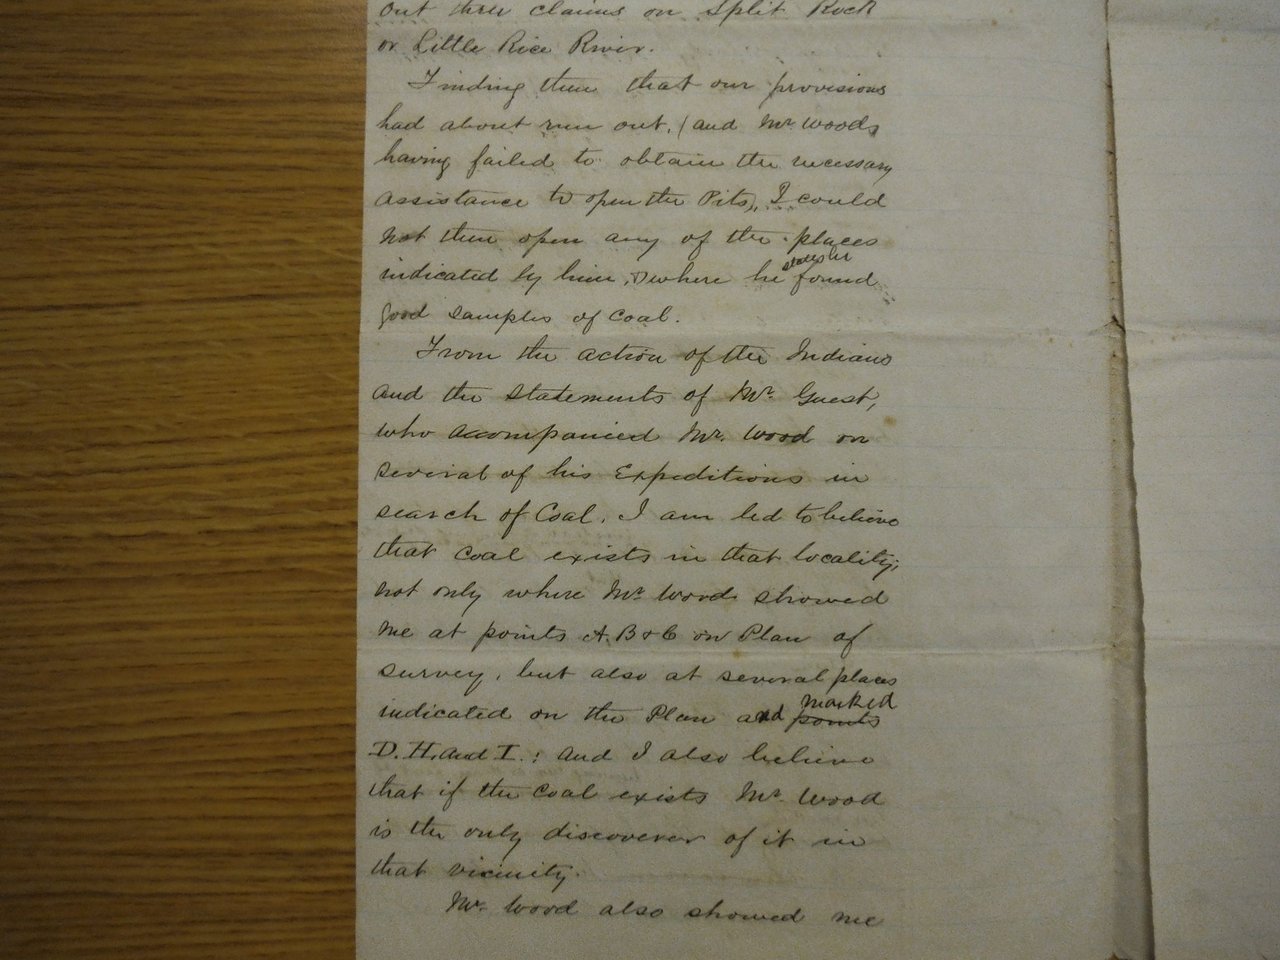 out three claims on Split Rock
or Little Rice River.
Finding then that our provisions
had about run out, (and Mr Woods
having failed to obtain the necessary
assistance to open the Pits), I could
not then open any of the places
indicated by him, & where he states he found
good samples of Coal.
From the action of the Indians
and the statements of Mr. Guest,
who accompanied Mr. Wood on
several of his Expeditions in
search of Coal, I am led to believe
that coal exists in that locality;
not only where Mr. Wood showed
me at points A. B & C on Plan of
survey, but also at several places
indicated on the Plan and points marked
D. H. and I.: and I also believe
that if the coal exists Mr. Wood
is the only discoverer of it in
that vicinity.
Mr. Wood also showed me